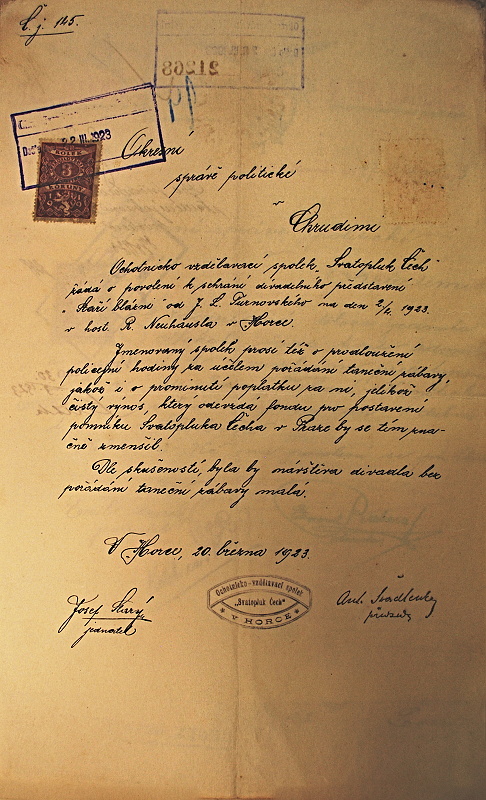 č. j. 125.
22 III. 1923
3
KORUNY
Okresní
správě politické
v
Chrudimi
Ochotnicko vzdělávací spolek „Svatopluk Čech“
žádá o povolení k sehrání divadelního představení
„Staří blázni“ od J. L. Turnovského na den 2/4. 1923.
v host. R. Neuhausla v Horce.
Jmenovaný spolek prosí též o prodloužení
policejní hodiny za účelem pořádání taneční zábavy,
jakož i o prominutí poplatku za ni, jelikož
čistý výnos, který odevzdá fondu pro postavení
pomníku Svatopluka Čecha v Praze by se tím zna-
čně zmenšil.
Dle zkušenosti, byla by návštěva divadla bez
pořádání taneční zábavy malá.
V Horce, 20. března 1923.
Josef Starý
jednatel
Ochotnicko-vzdělávací spolek
„Svatopluk Čech“
V HORCE
Ant.
předseda